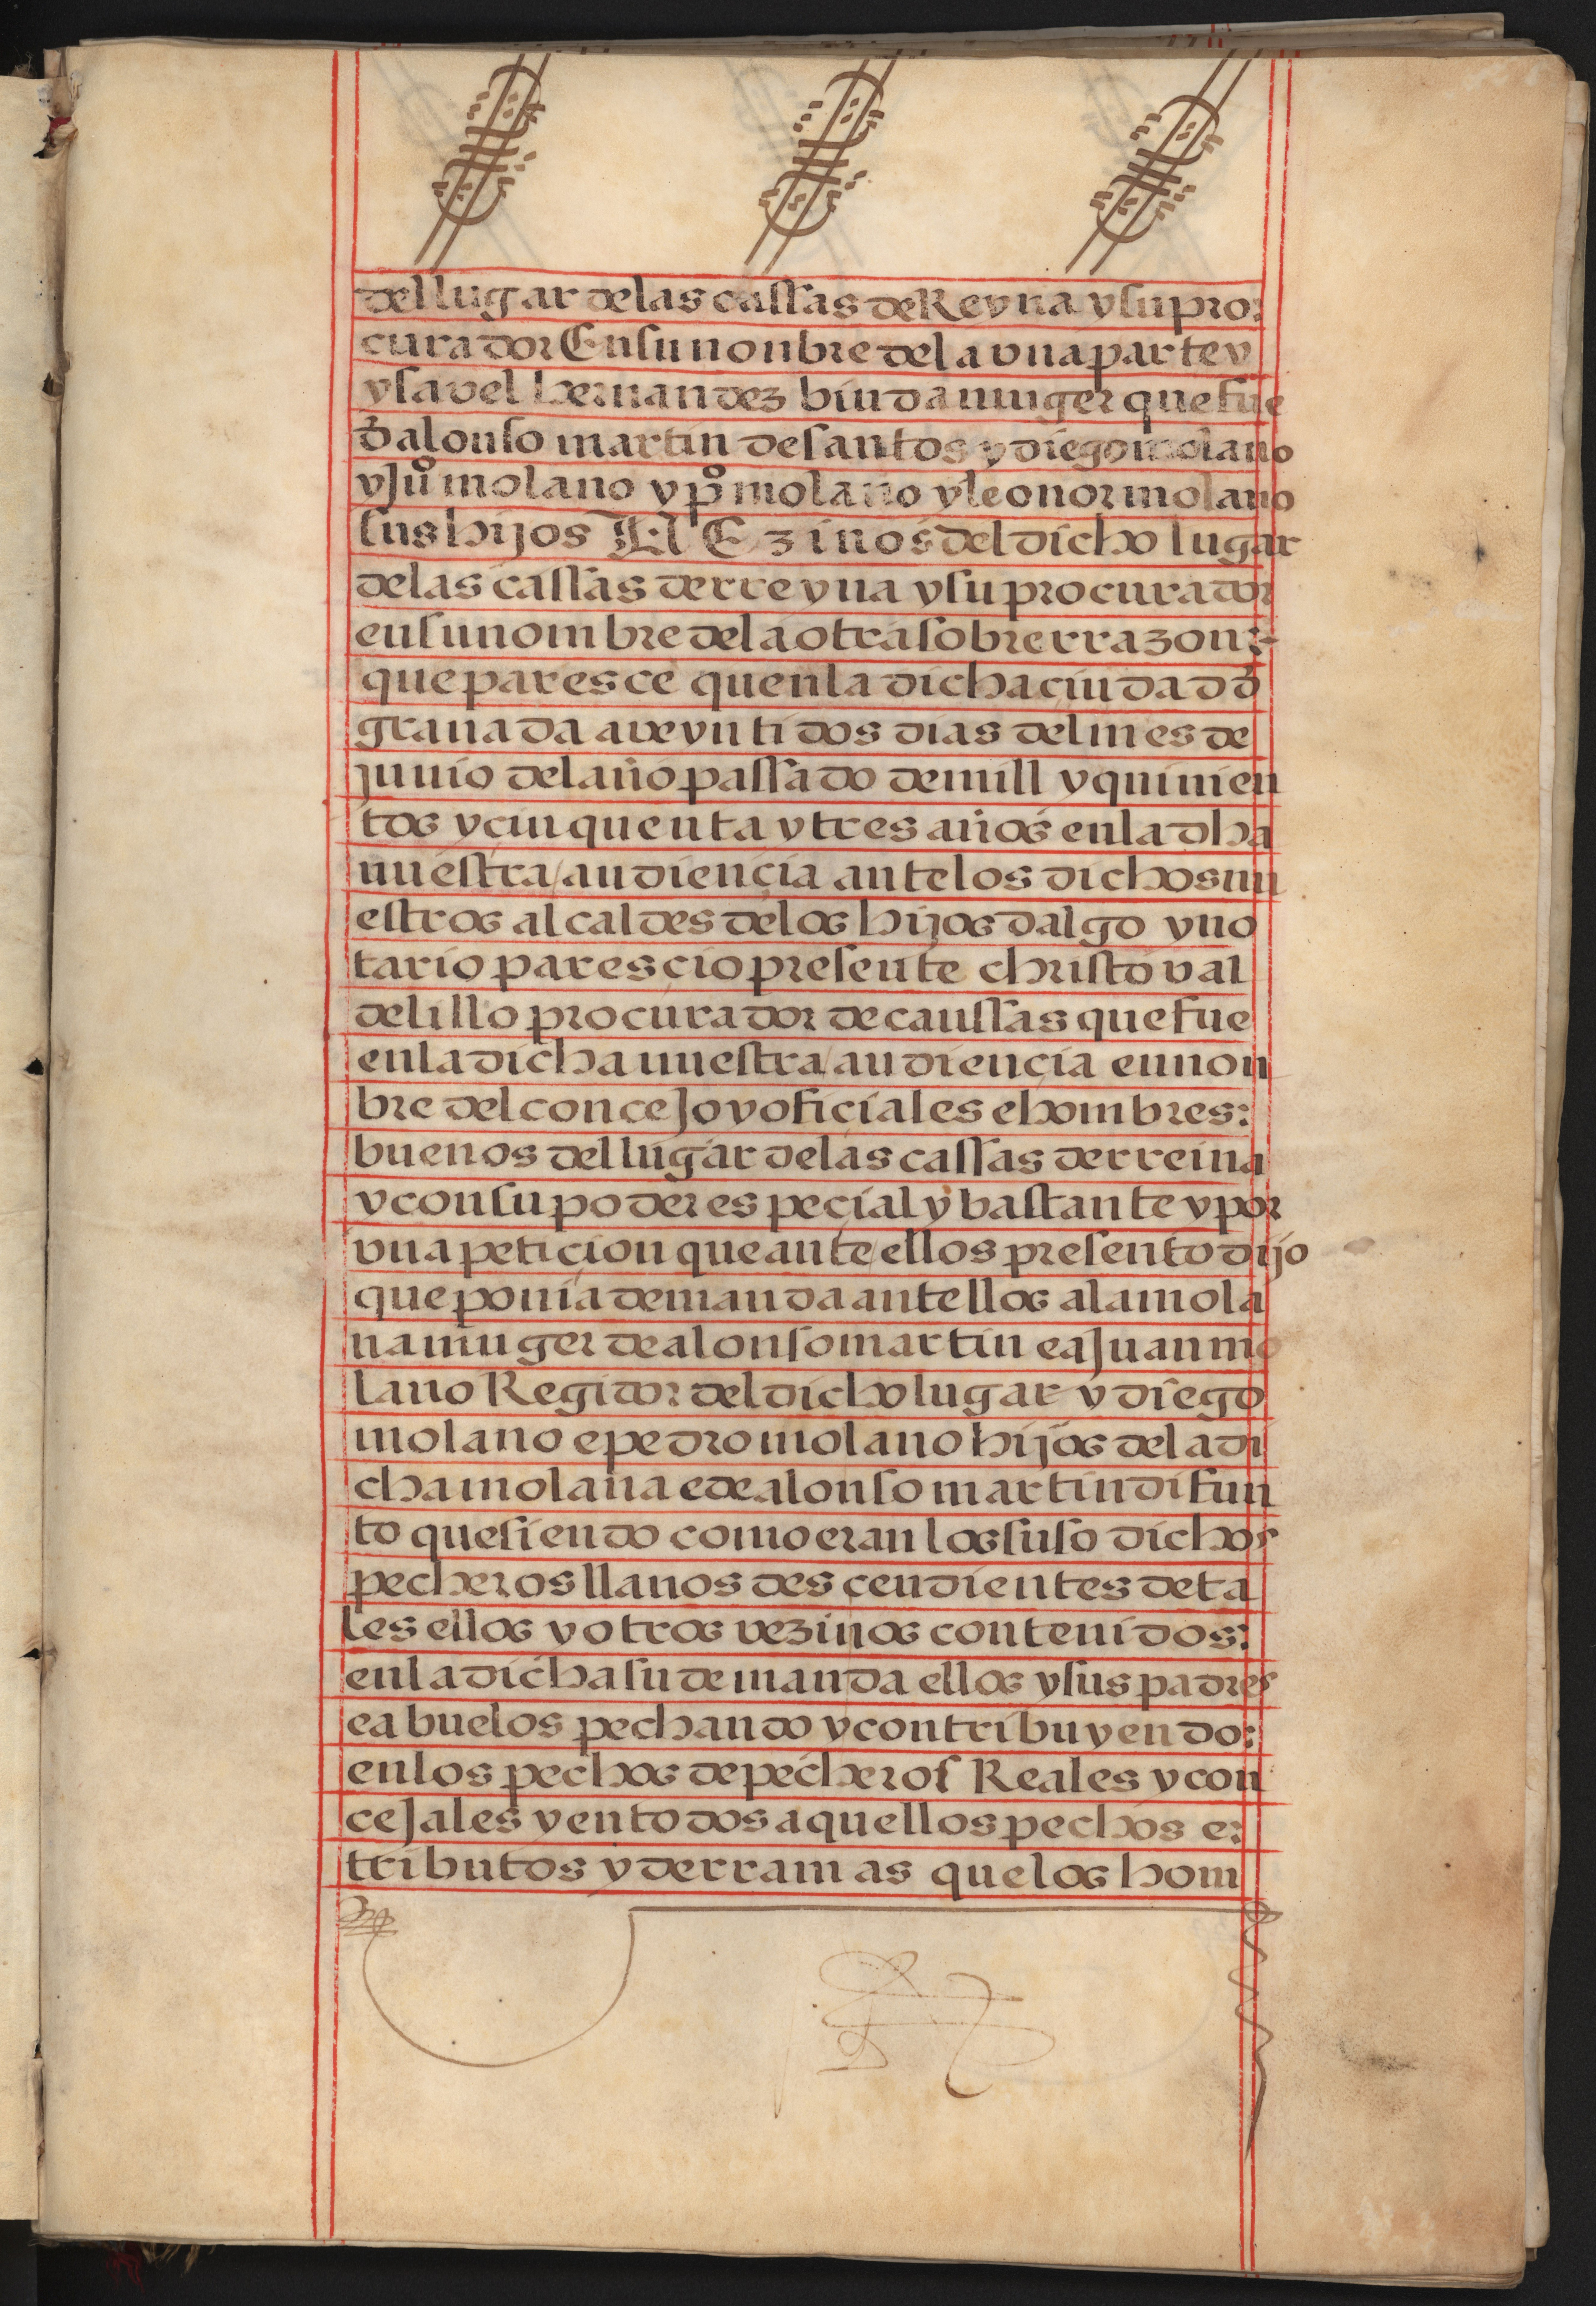 del lugar de las cassas de Reyna y su pro:
curador En su nonbre de la una parte y
ysavel hernandez biuda muger que fue
d̄ alonso martin de santos y diego molano
y juº molano y pº molano y leonor molano
sus hijos VEzinos del dicho lugar
de las cassas de rreyna y su procurador
en su nombre de la otra sobre rrazon:-
que paresce quen la dicha ciudad d̄
granada a veynti dos dias del mes de
junio del año passado de mill y quinien
tos y cinquenta y tres años en la dha
nuestra / audiencia ante los dichos nu
estros alcaldes de los hijos dalgo y no
tario parescio presente christoval
de lillo procurador de caussas que fue
en la dicha nuestra / audiencia en non
bre del concejo y oficiales e hombres:
buenos del lugar de las cassas de rreina
y con su poder especial y bastante y por
una peticion que ante / ellos presento dijo
que ponia demanda antellos a la mola
na muger de alonso martin e a juan mo
lano Regidor del dicho lugar y diego
molano e pedro molano hijos de la di
cha molana e de alonso martin difun
to que siendo como eran los suso dichos
pecheros llanos descendientes de ta
les ellos y otros vezinos contenidos:
en la dicha su demanda ellos y sus padres
e abuelos pechando y contribuyendo:
en los pechos de pecheros Reales y con
cejales y en todos aquellos pechos e:
tributos y derramas que los hom